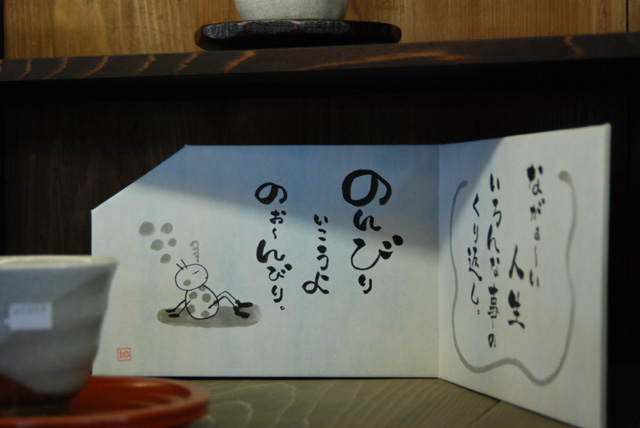 ながぁ〜い
人生
いろんな事の
くり返し。
のんびり
いこうよ
のぉ〜んびり。